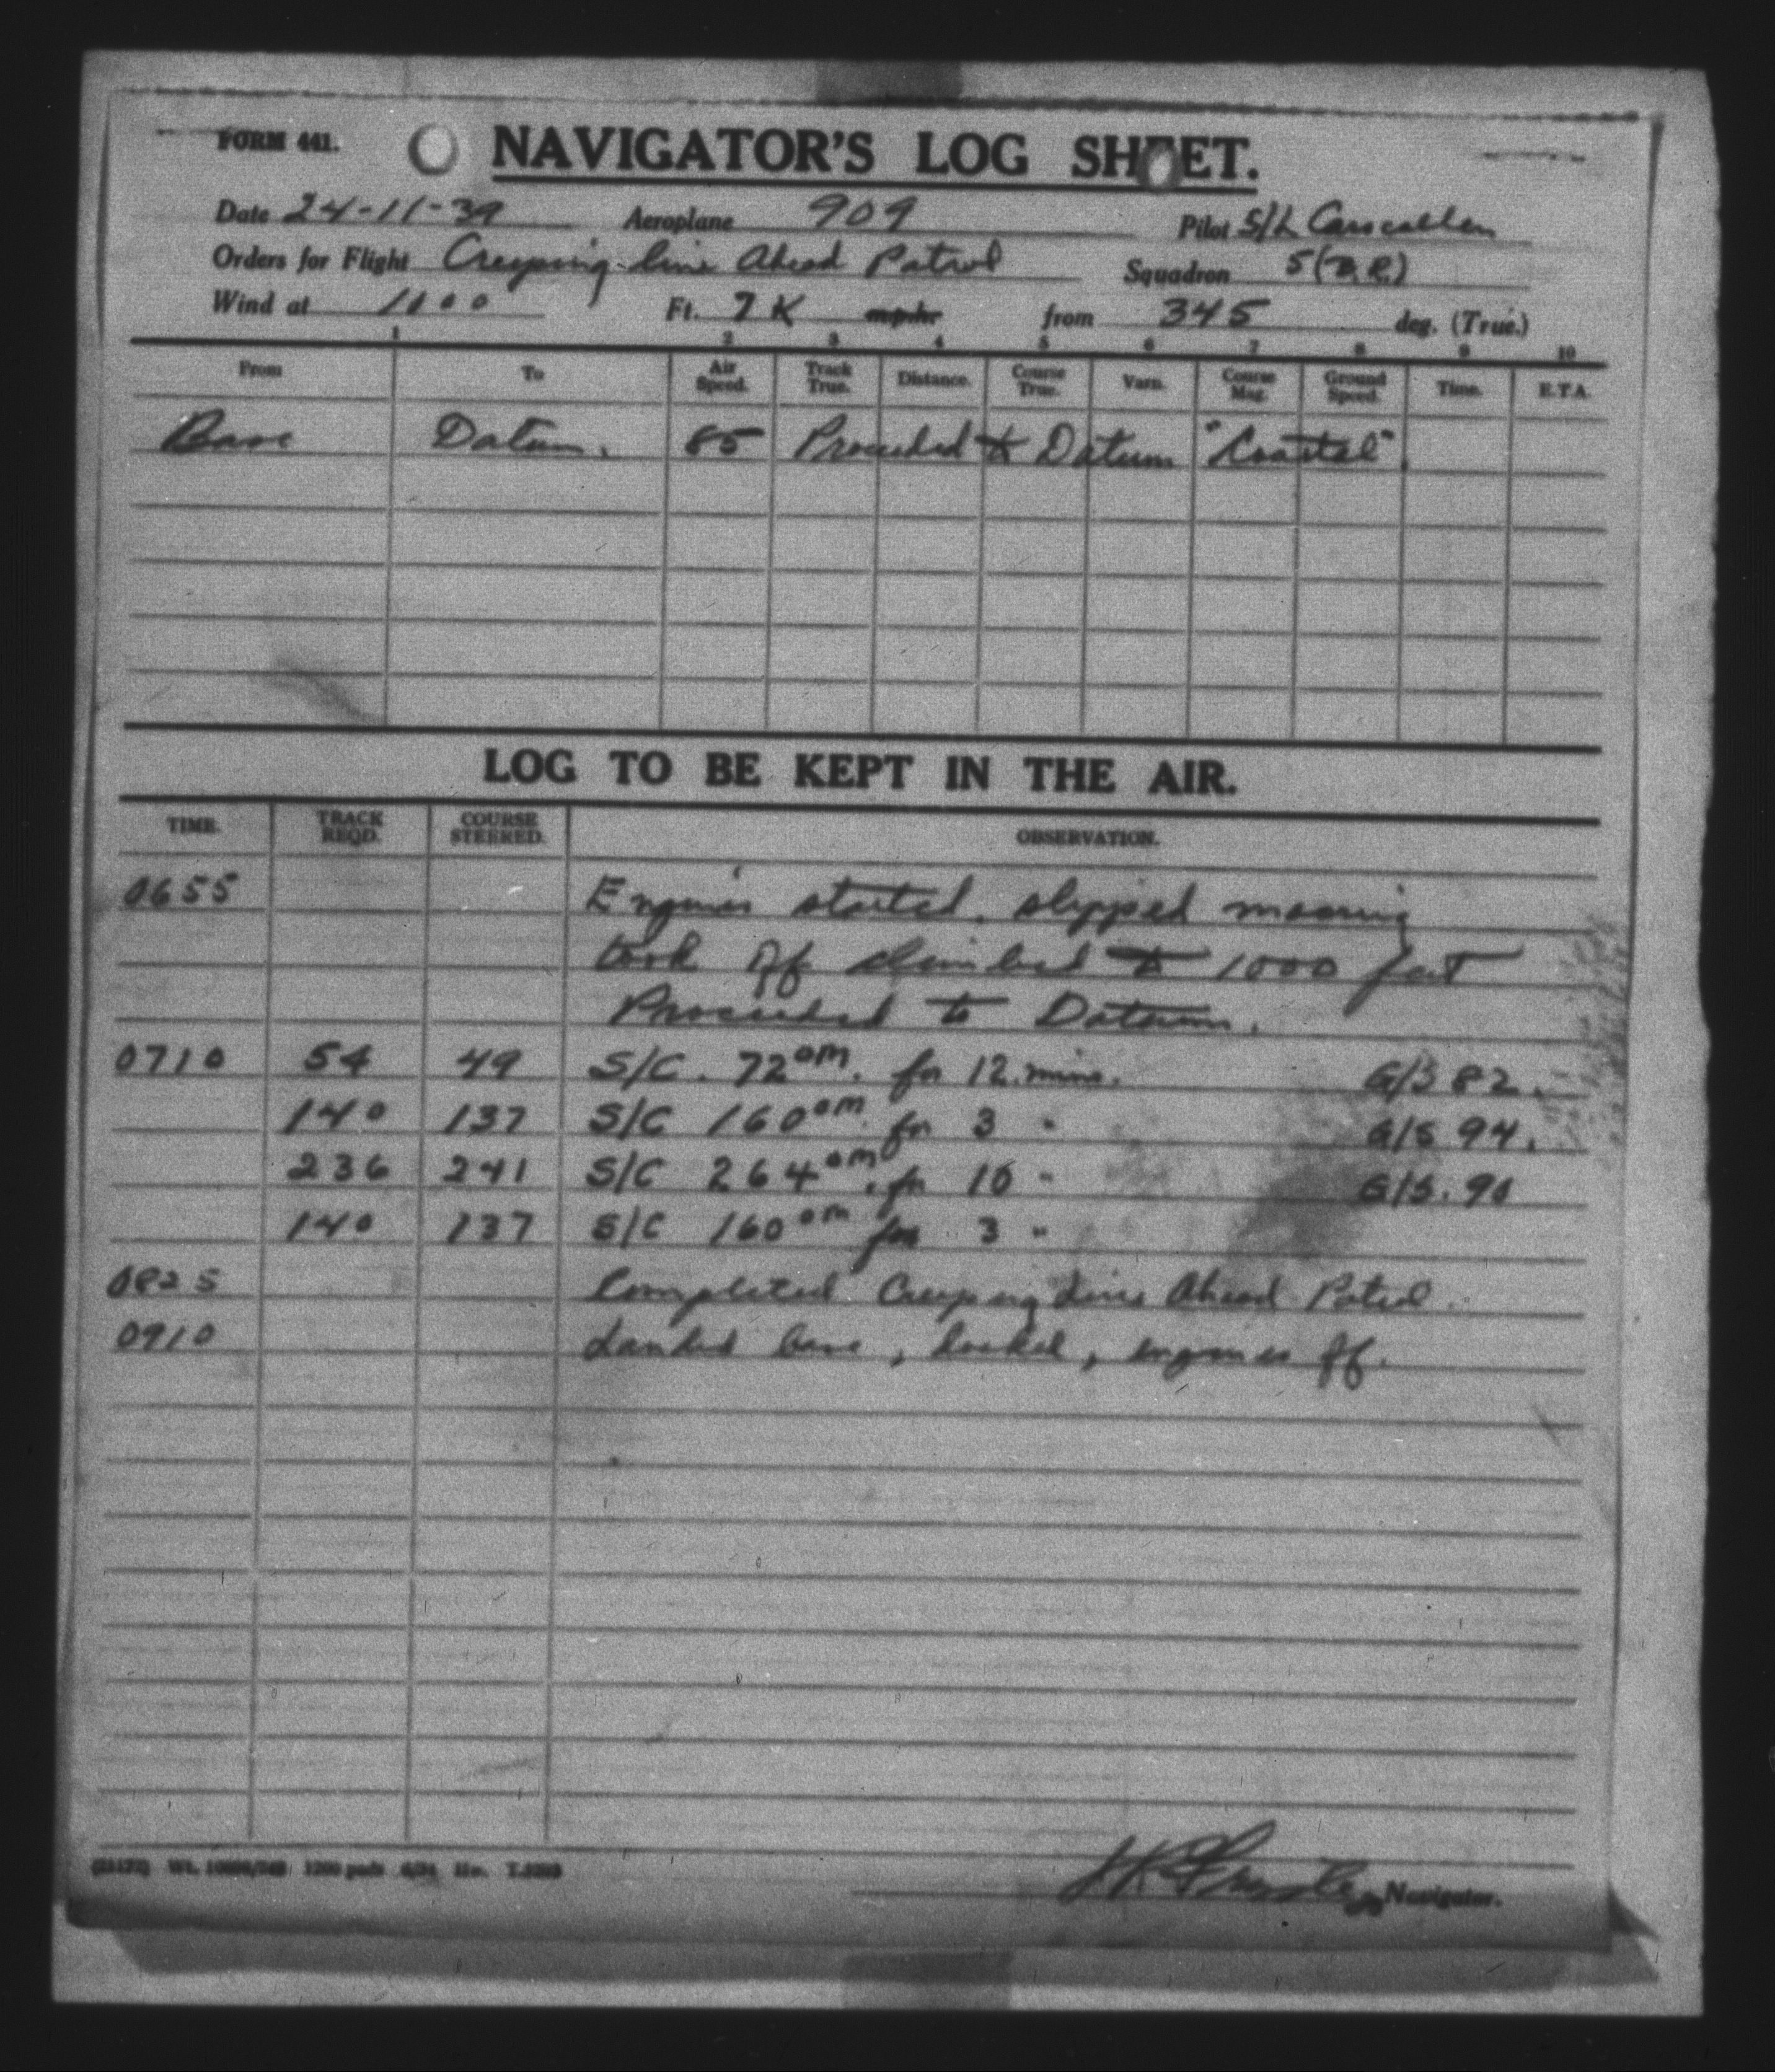 FORM 441.
NAVIGATOR'S LOG SHEET.
Date 24-11-39 Aeroplane 909 Pilot S/L Carscallen
Orders for Flight Creeping-line Ahead Patrol Squadron 5(B.R.)
Wind at 1100 Ft. 7 K m.p.hr from 345 deg. (True.)
1 2 3 4 5 6 7 8 9 10
From To Air Speed. Track True. Distance. Course True. Varn. Course Mag. Ground Speed. Time. E.T.A.
Base Datum. 85 Proceeded to Datum "Coastal".
LOG TO BE KEPT IN THE AIR.
TIME. TRACK REQD. COURSE STEERED. OBSERVATION.
0655 Engines started. slipped mooring
took off climbed to 1000 feet
Proceeded to Datum.
0710 54 49 S/C. 72 om. for 12. mins. G/S 82.
140 137 S/C 160 om. for 3 " G/S 94.
236 241 S/C 264 om. for 10 " G/S. 90
140 137 S/C 160 om for 3 "
0825 Completed Creeping Line Ahead Patrol.
0910 Landed base, docked, engines off.
Wt. 1200 pads T.
Navigator.